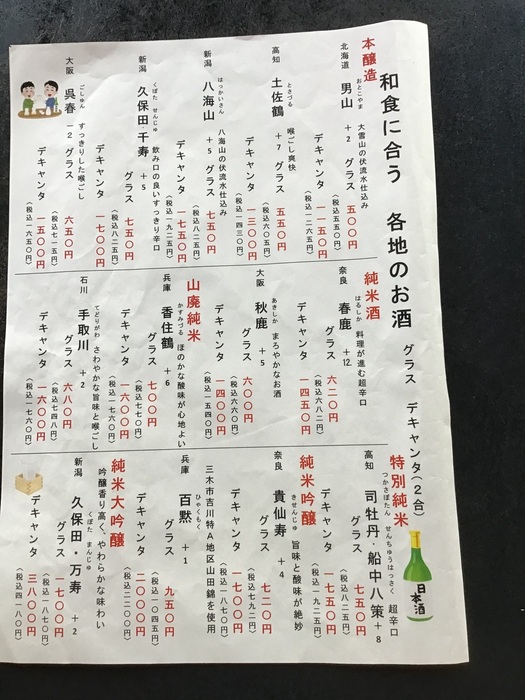 和食に合う 各地のお酒 グラス デキャンタ(2合)
本醸造
北海道 男山 +2 大雪山の伏流水仕込み
おとこやま
グラス 五〇〇円
(税込五五〇円)
デキャンタ 一一五〇円
(税込一二六五円)
高知 土佐鶴 +7 喉ごし爽快
とさづる
グラス 五五〇円
(税込六〇五円)
デキャンタ 一三〇〇円
(税込一四三〇円)
新潟 八海山 +5 八海山の伏流水仕込み
はっかいさん
グラス 七五〇円
(税込八二五円)
デキャンタ 一七五〇円
(税込一九二五円)
新潟 久保田・千寿 +5 飲み口の良いすっきり辛口
くぼた せんじゅ
グラス 七五〇円
(税込八二五円)
デキャンタ 一七〇〇円
大阪 呉春 -2 すっきりした喉ごし
ごしゅん
グラス 六五〇円
(税込七一五円)
デキャンタ 一五〇〇円
(税込一六五〇円)
純米酒
奈良 春鹿 +12 料理が進む超辛口
はるしか
グラス 六二〇円
(税込六八二円)
デキャンタ 一四五〇円
大阪 秋鹿 +5 まろやかなお酒
あきしか
グラス 六〇〇円
デキャンタ 一四〇〇円
(税込一五四〇円)
山廃純米
兵庫 香住鶴 +6 ほのかな酸味が心地よい
かすみづる
グラス 七〇〇円
(税込七七〇円)
デキャンタ 一六〇〇円
(税込一七六〇円)
石川 手取川 +2 さわやかな旨味と喉ごし
てどりがわ
グラス 六八〇円
(税込七四八円)
デキャンタ 一六〇〇円
(税込一七六〇円)
特別純米
高知 司牡丹・船中八策 +8 超辛口
つかさぼたん せんちゅうはっさく
グラス 七五〇円
(税込八二五円)
デキャンタ 一七五〇円
(税込一九二五円)
純米吟醸
奈良 貴仙寿 +4 旨味と酸味が絶妙
きせんじゅ
グラス 七二〇円
(税込七九二円)
デキャンタ 一七〇〇円
(税込一八七〇円)
三木市吉川特A地区山田錦を使用
兵庫 百黙 +1
ひゃくもく
グラス 九五〇円
(税込一〇四五円)
デキャンタ 二〇〇〇円
(税込二二〇〇円)
純米大吟醸
吟醸香り高く、やわらかな味わい
新潟 久保田・万寿 +2
くぼた まんじゅ
グラス 一七〇〇円
(税込一八七〇円)
デキャンタ 三八〇〇円
(税込四一八〇円)
日本酒